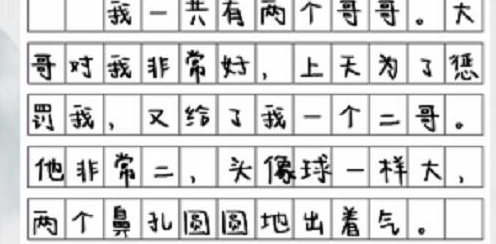 我一共有两个哥哥。大
哥对我非常好，上天为了惩
罚我，又给了我一个二哥。
他非常二，头像球一样大，
两个鼻孔圆圆地出着气。